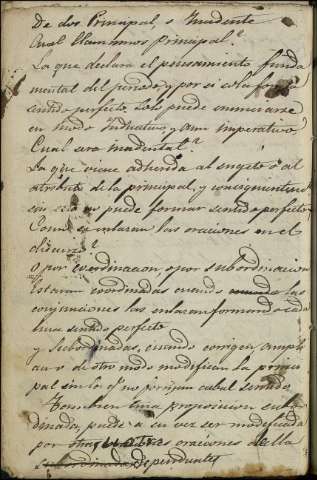 De dos Principal, o Incidente
Cual llamamos principal?
La que declara el pensamiento funda
mental del periodo y por si sola forma
sentido perfecto. Solo puede enunciarse
en modo Indicativo, y aun imperativo
Cual será incidental?
La que viene adherida al sugeto o al
atributo de la principal, y consiguientem
sin esta no puede formar sentido perfecto
Como se enlazan las oraciones en el
discurso?
O por coordinacion, o por subordinacion
Estaran coordinadas cuando las
conjunciones las enlazan formando cada
una sentido perfecto
y Subordinadas, cuando corrigen, ampli
an o de otro modo modifican la princi
pal sin la q.e no porigan cabal sentido
Tambien una proposicion subor
dinada, puede a su vez ser modificada
por otras oraciones de ella
subordinada dependientes